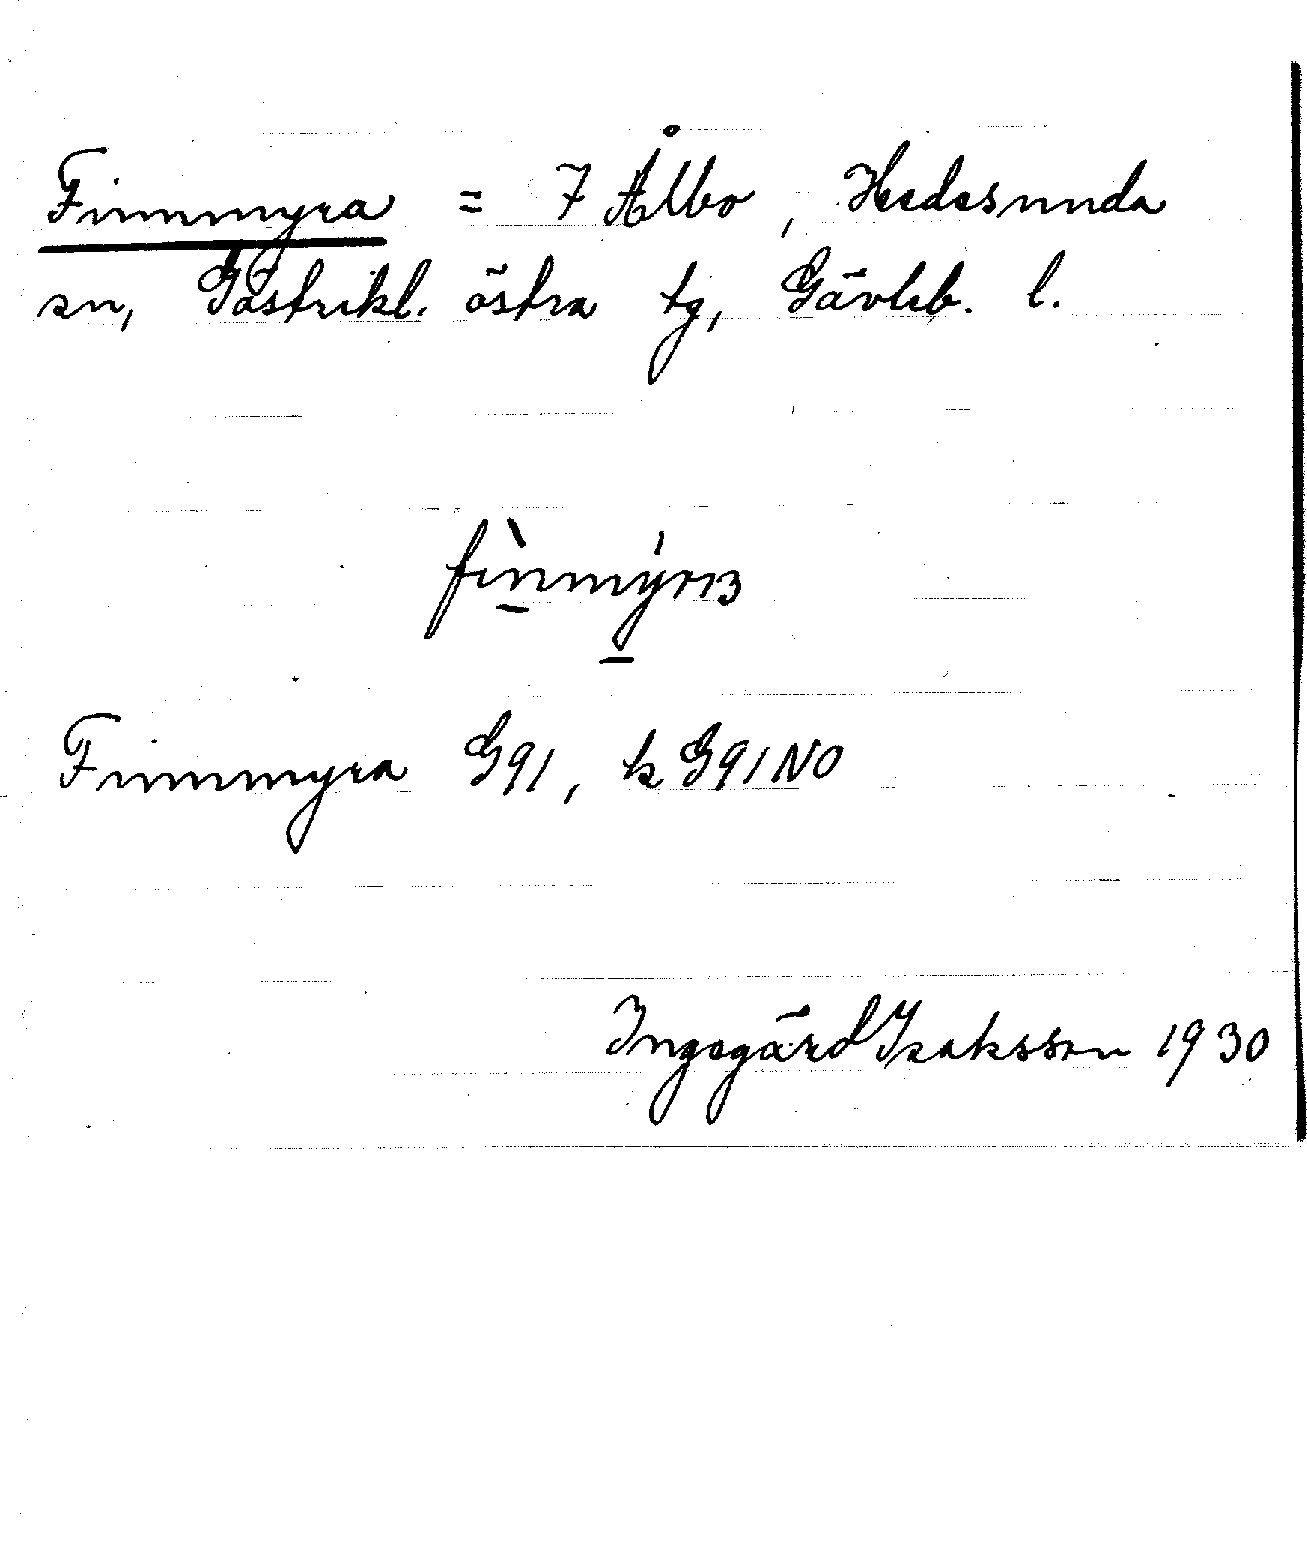 Finnmyra = 7 Ålbo, Hedesunda
sn, Gästrikl. östra tg, Gävleb. l.
Finnmyra G91, k G91NO
Ingegärd Isaksson 1930